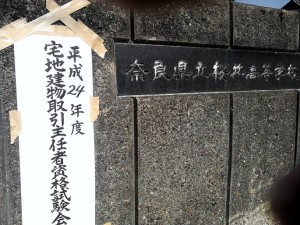 平成24年度
宅地建物取引主任者資格試験会
奈良県立桜井高等学校